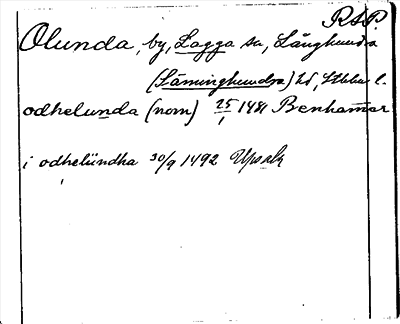 R.S.P.
Olunda, by, Lagga sn, Långhundra
(Särminghundra) hd, Sthlm l.
odhelunda (nom) 25/1 1481 Benhamar
i odhelündha 30/9 1492 Upsala